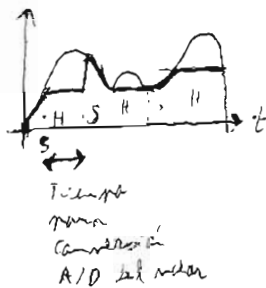 H S H , H t
S
Tiempo
para
Conversión
A/D del